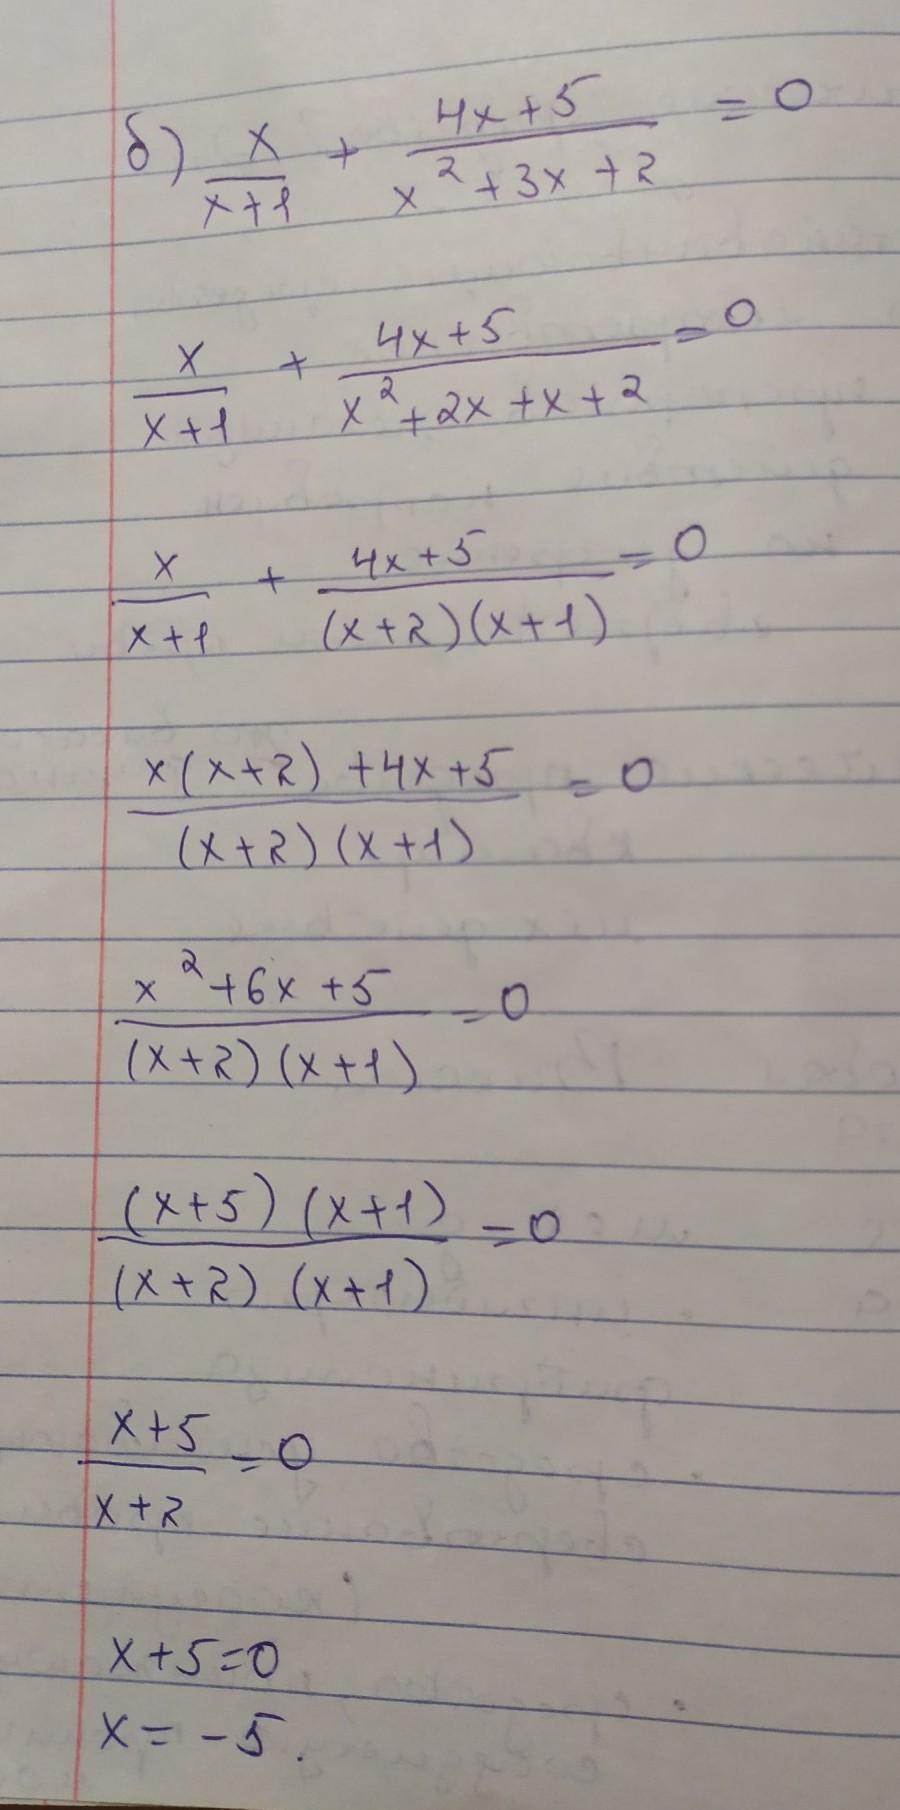 б) x/(x+1) + (4x+5)/(x²+3x+2) = 0
x/(x+1) + (4x+5)/(x²+2x+x+2) = 0
x/(x+1) + (4x+5)/((x+2)(x+1)) = 0
(x(x+2)+4x+5)/((x+2)(x+1)) = 0
(x²+6x+5)/((x+2)(x+1)) = 0
((x+5)(x+1))/((x+2)(x+1)) = 0
(x+5)/(x+2) = 0
x+5=0
x = -5.